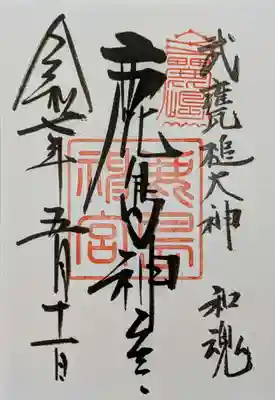 武甕槌大神
和魂
鹿島神宮
鹿島
神宮
令和七年五月十一日